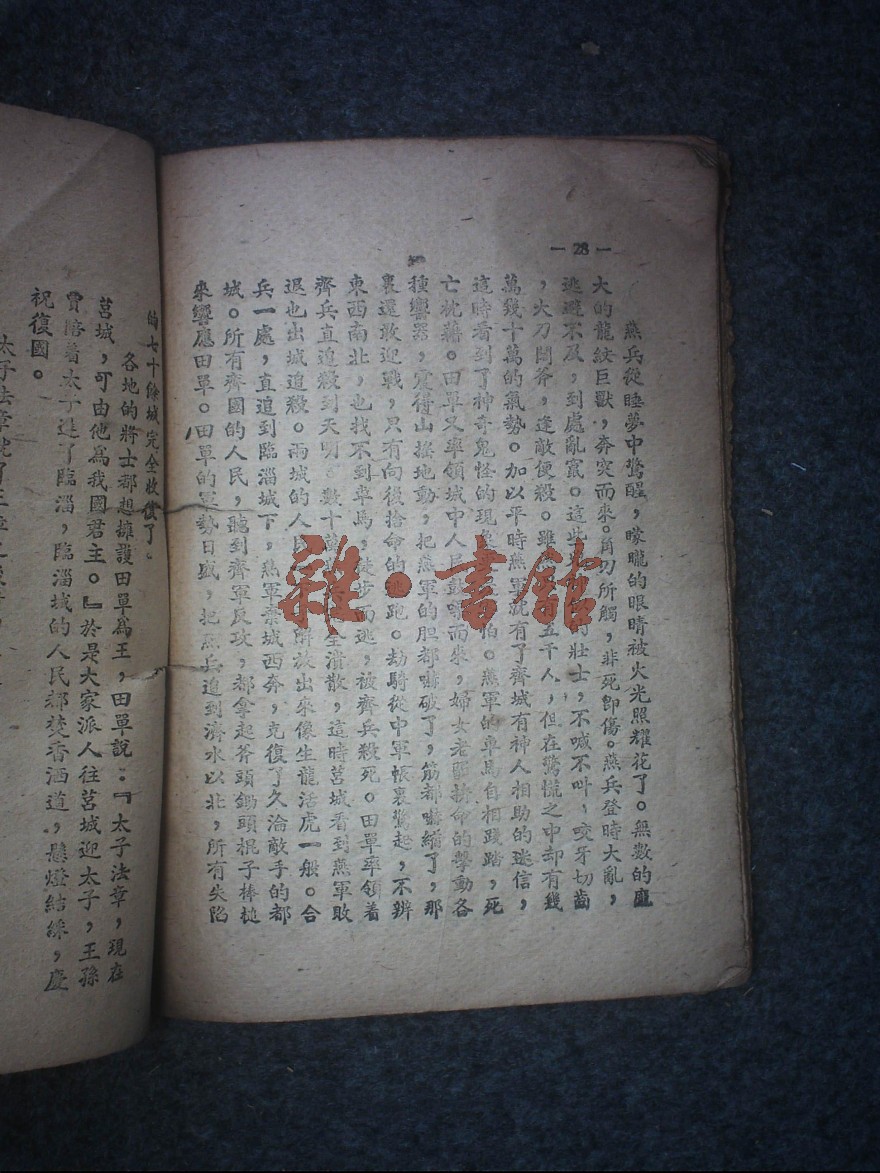 — 28 —
燕兵從睡夢中驚醒，矇矓的眼睛被火光照耀花了。無數的龐
大的龍紋巨獸，奔突而來。角刃所觸，非死卽傷。燕兵登時大亂，
逃避不及，到處亂竄。這些 壯士，不喊不叫，咬牙切齒
，大刀闊斧，逢敵便殺。雖 五千人，但在驚慌之中却有幾
萬幾十萬的氣勢。加以平時燕軍就有了齊城有神人相助的迷信，
這時看到了神奇鬼怪的現 怕。燕軍的車馬自相踐踏，死
亡枕藉。田單又率領城中人民鼓噪而來，婦女老 拚命的擊動各
種響器，震得山搖地動，把燕軍的胆都嚇破了，筋都嚇縮了，那
裏還敢迎戰，只有向後捨命的逃跑。劫騎從中軍帳裏驚起，不辨
東西南北，也找不到車馬，徒步而逃，被齊兵殺死。田單率領着
齊兵直追殺到天明。數十萬 全潰散，這時莒城看到燕軍敗
退也出城追殺。兩城的人民 解放出來像生龍活虎一般。合
兵一處，直追到臨淄城下，燕軍棄城西奔，克復了久淪敵手的都
城。所有齊國的人民，聽到齊軍反攻，都拿起斧頭鋤頭棍子棒槌
來響應田單。田單的軍勢日盛，把燕兵追到濟水以北，所有失陷
的七十餘城完全收復了。
各地的將士都想擁護田單爲王，田單說：『太子法章，現在
莒城，可由他爲我國君主。』於是大家派人往莒城迎太子，王孫
賈陪着太子進了臨淄，臨淄城的人民都焚香洒道，懸燈結綵，慶
祝復國。
太子法章
雜·書館